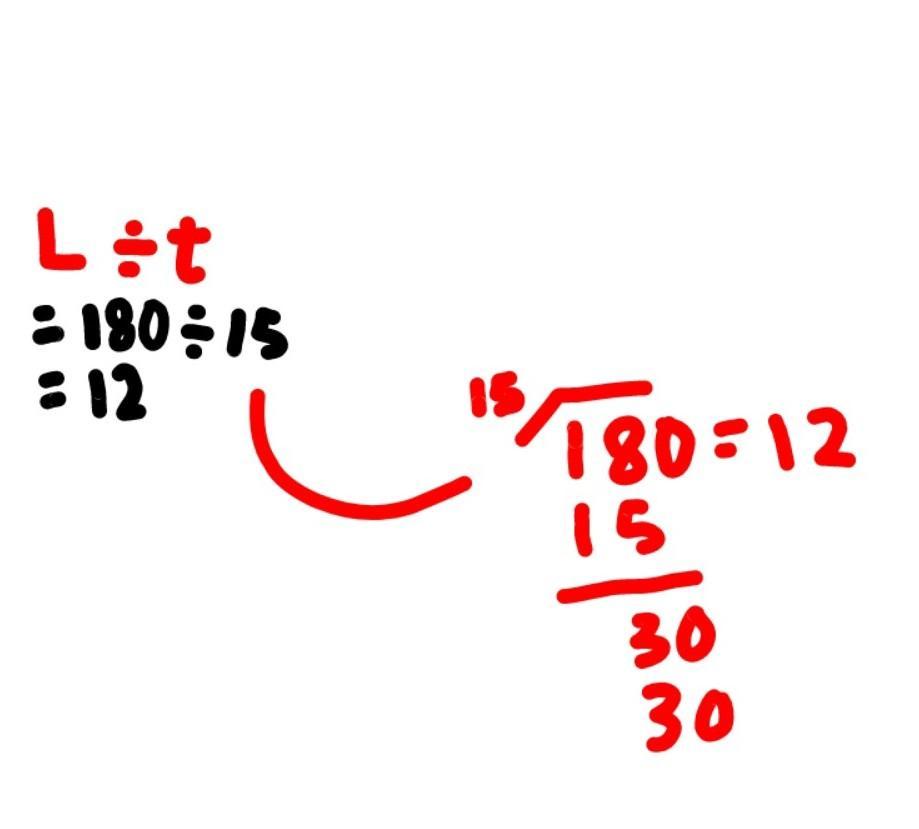 L ÷ t
= 180 ÷ 15
= 12
15
180 = 12
15
30
30